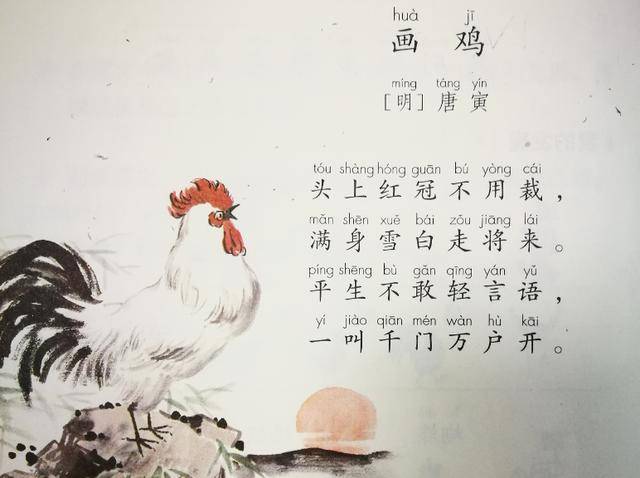 huà jī
画 鸡
míng táng yín
[明]唐寅
tóu shàng hóng guān bú yòng cái
头上红冠不用裁，
mǎn shēn xuě bái zǒu jiāng lái
满身雪白走将来。
píng shēng bù gǎn qīng yán yǔ
平生不敢轻言语，
yí jiào qiān mén wàn hù kāi
一叫千门万户开。